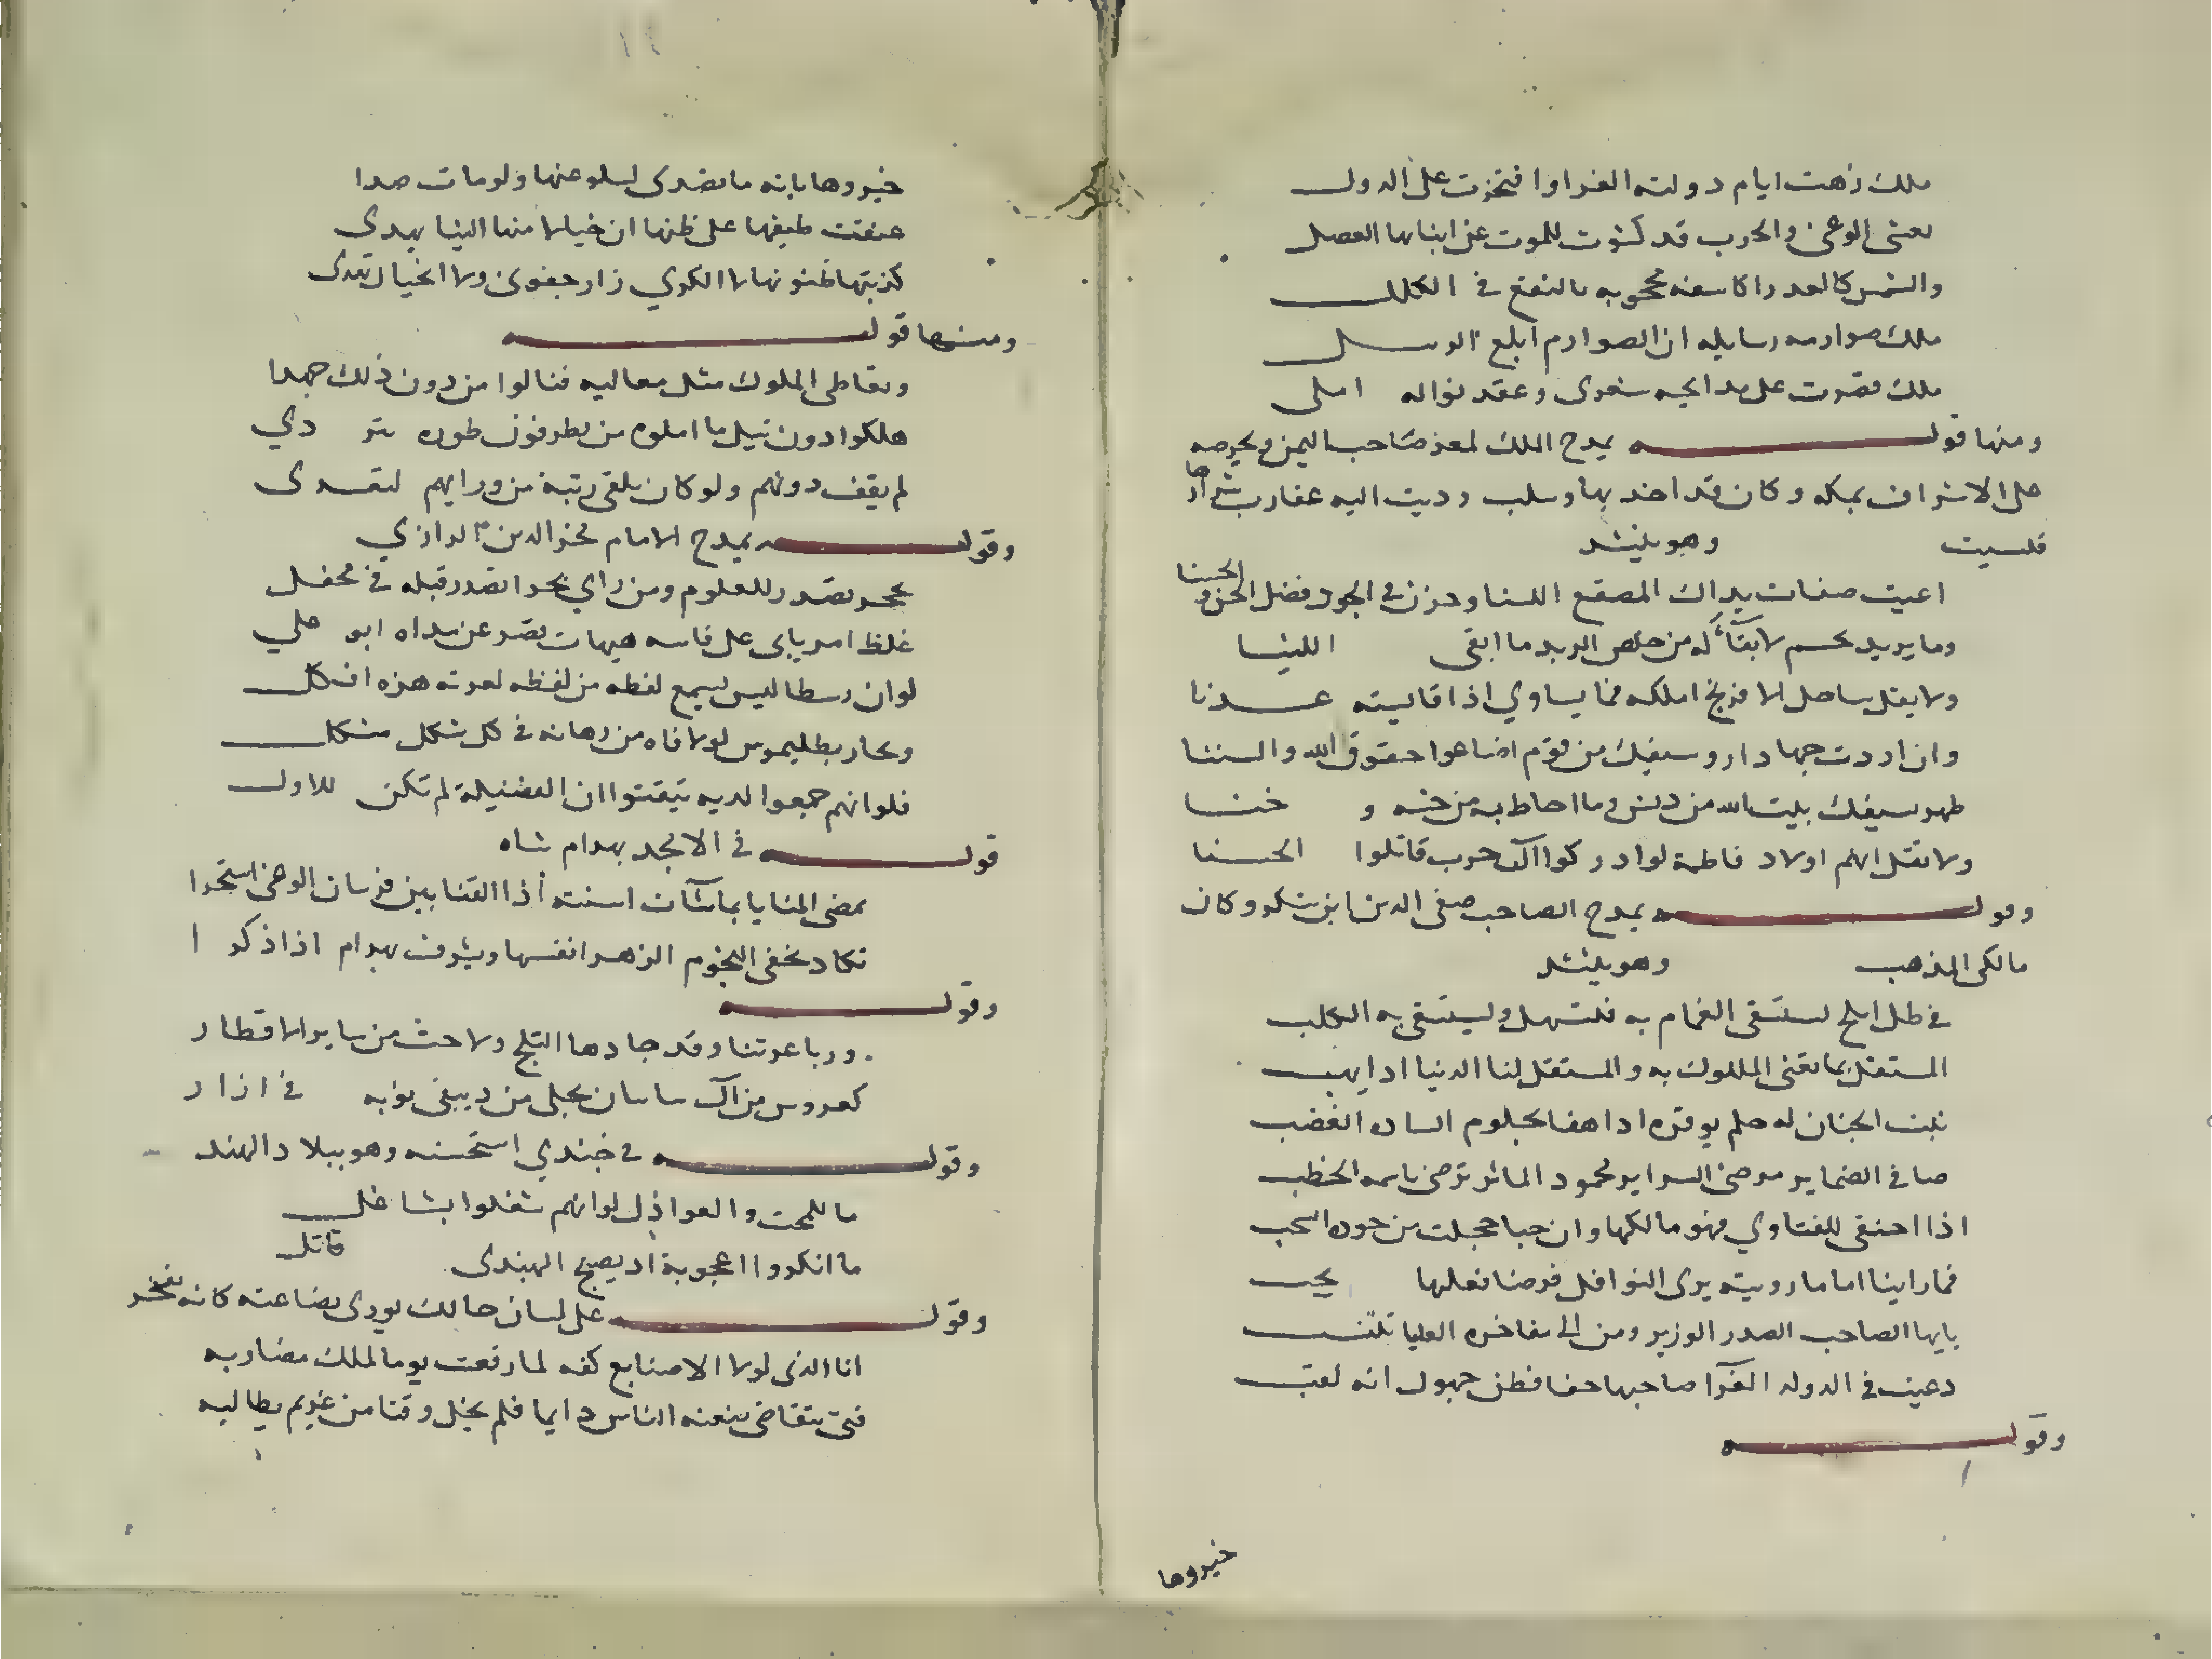 ملك زهت ايام دولته الغرا وافتخرت على الدول
يغشى الوغى والحرب قد كشرت للموت عن انيابها العصل
والشمس كالعدرا كاسفه محجوبه بالنقع في الكلل
ملك صوارمه رسايله ان الصوارم ابلغ الرسل
ملك قصرت على مدايحه شعرى وعقد نواله املى
ومنها قوله يمدح الملك لمعز صاحب اليمن ويحرضه
على الاشراف بمكه وكان قد اخد بها وسلب ودبت اليه عقارب شرها
فلسبت وهو ينشد
اعيت صفات يداك المصقع اللسنا وحزت في الجود فضل الحسن والحسنا
وما يريد بحسم لا بقآء له من خلص الزبد ما ابقى اللبنا
ولا يقل ساحل الافرنج املكه فما يساوي اذا قايسته عدنا
وان اردت جهادا روسيفك من قوم اضاعوا حقوق الله والسننا
طهر بسيفك بيت الله من دنس وما احاط به من خسه وخنا
ولا تقل انهم اولاد فاطمة لو ادركوا آل حرب قاتلوا الحسنا
وقوله يمدح الصاحب صفى الدين ابن شكر وكان
مالكى المذهب وهو ينشد
في ظل ابلج يستسقى الغمام به فتستهل ويستشفى به الكلب
المستقل بما تعنى الملوك به والمستقل لنا الدنيا اذا يهب
ثبت الجنان له حلم يوقره اذا هفا بحلوم الساده الغضب
صافي الضماير مرضى السراير محمود الماثر ترضى باسمه الخطب
اذا احتفى للفتاوي فهو مالكها وان حبا خجلت من جوده السحب
فما راينا اماما رويته يرى النوافل فرضا فعلها يجب
يايها الصاحب الصدر الوزير ومن الى مفاخره العليا تنتسب
دعيت في الدوله الغرآ صاحبها حقا فظن جهول انه لقب
وقوله
خبروها
خبروها بانه ما تصدى لسلو عنها ولو مات صدا
عنفت طيفها على ظنها ان خيالا منها الينا يهدى
كذبتها ظنونها لا الكرى زار جفونى ولا الخيال تعدى
ومنها قوله
وتعاطى الملوك مثل معاليه فنالوا من دون ذلك جهدا
هلكوا دون نيل ما املوه من يطر فوق طوره يتردي
لم يقف دونهم ولو كان يلقى رتبة من ورايهم لتعدى
وقوله يمدح الامام فخر الدين الرازي
بحر تصدر للعلوم ومن راي بحرا تصدر قبله في محفل
غلط امرء بابى على قاسه هيهات قصر عن مداه ابو علي
لو ان رسطاليس يسمع لفظه من لفظه لعرته هزه افكل
ولحار بطليموس لو لاقاه من برهانه في كل شكل مشكل
فلو انهم جمعوا لديه تيقنوا ان الفضيلة لم تكن للاول
قوله في الامجد بهرام شاه
يمضى المنايا بما شآت اسنته اذا القنا بين فرسان الوغى اشتجرا
تكاد تخفى النجوم الزهر انفسها ويشرف بهرام اذا ذكرا
وقوله
ورباعرتنا وقد جادها الثلج ولاحت من ساير الاقطار
كعروس من آل ساسان تجلى من دبيقى ثوبه في ازار
وقوله في جندي استحسنه وهو ببلاد الهند
ما للمحب وللعواذل لو انهم شغلوا بشاغل
ما انكروا اعجوبة ان يصبح الهندى قاتل
وقوله على لسان حالك يورى بضاعته كانه يفتخر
انا الذى لولا الاصنايع كفه لما رفعت يوما لملك مضاربه
فتى يتقاضى بيعه الناس دايما فلم يخل وقتا من غريم يطالبه